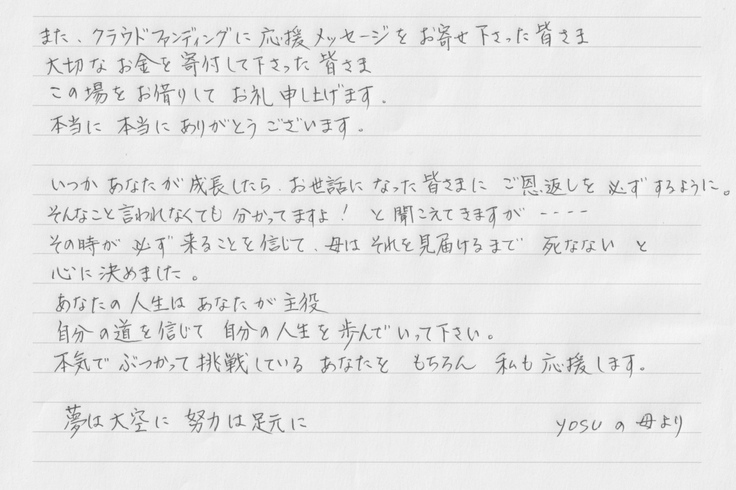 また、クラウドファンディングに応援メッセージをお寄せ下さった皆さま
大切なお金を寄付して下さった皆さま
この場をお借りしてお礼申し上げます.
本当に本当にありがとうございます。
いつかあなたが成長したら、お世話になった皆さまにご恩返しを必ずするように。
そんなこと言われなくても分かってますよ! と聞こえてきますが----
その時が必ず来ることを信じて、母はそれを見届けるまで死なないと
心に決めました。
あなたの人生はあなたが主役
自分の道を信じて自分の人生を歩んでいって下さい。
本気でぶつかって挑戦しているあなたをもちろん私も応援します。
夢は大空に 努力は足元に
yosuの母より